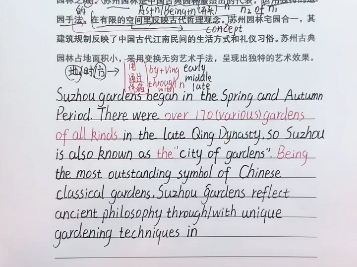 园手法，在有限的空间里反映古代哲理观念，苏州园林宅园合一，其
concept
建筑规制反映了中国古代江南民间的生活方式和礼仪习俗。苏州古典
园林占地面积小，采用变换无穷艺术手法，呈现出独特的艺术效果。
by+ving early
through n middle
late
Suzhou gardens began in the Spring and Autumn
Period. There were over 170 (various) gardens
of all kinds in the late Qing Dynasty, so Suzhou
is also known as the "city of gardens". Being
the most outstanding symbol of Chinese
classical gardens, Suzhou Gardens reflect
ancient philosophy through/with unique
gardening techniques in